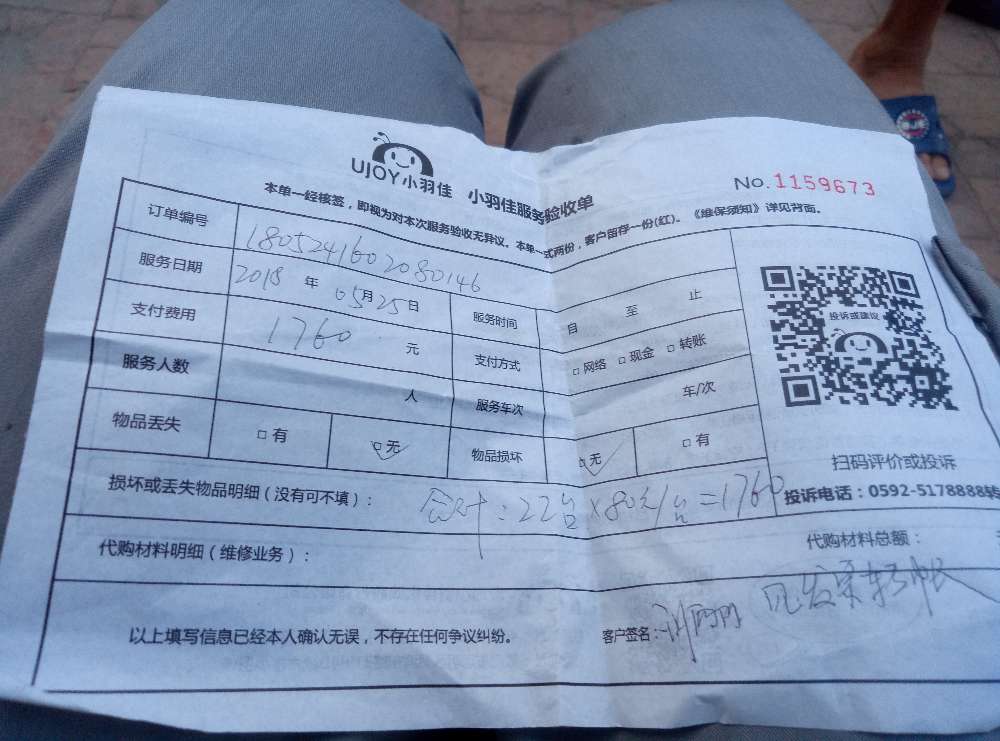 UJOY小羽佳 小羽佳服务验收单
No.1159673
本单一经核签，即视为对本次服务验收无异议。本单一式两份，客户留存一份(红)。《维保须知》详见背面。
订单编号 1805241602080146
服务日期 2018 年 05 月 25 日 服务时间 自 至 止
支付费用 1760 元 支付方式 □ 网络 □ 现金 □ 转账
服务人数 人 服务车次 车/次
物品丢失 □ 有 □ 无 物品损坏 □ 无 □ 有
投诉或建议
扫码评价或投诉
投诉电话：0592-5178888转
损坏或丢失物品明细（没有可不填）： 合计：22台×80元/台=1760
代购材料明细（维修业务）： 代购材料总额：
以上填写信息已经本人确认无误，不存在任何争议纠纷。 客户签名： 见发票转帐